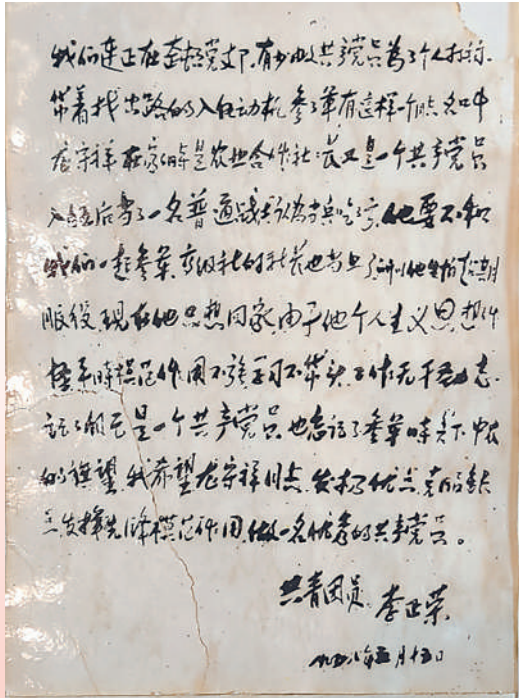 我们连正在整顿党支部,有少数共产党员为了个人打祘.
带着找出路的入伍动机参了军有这样一个同志名叫
龙守祥在家时是农业合作社社长又是一个共产党员
入伍后当了一名普通战士认为当兵吃亏,他要不和
我们一起参军,高级社的社长也当上了
服役,现在他思想回家,由于他个人主义思想
平时模范作用不强学习不带头工作无干劲忘
记了自己是一个共产党员,也忘记了参军时
的希望,我希望龙守祥同志,发扬优点克服缺
点发挥先锋模范作用,做一名优秀的共产党员。
共青团员 李正荣
一九五八年 月十五日